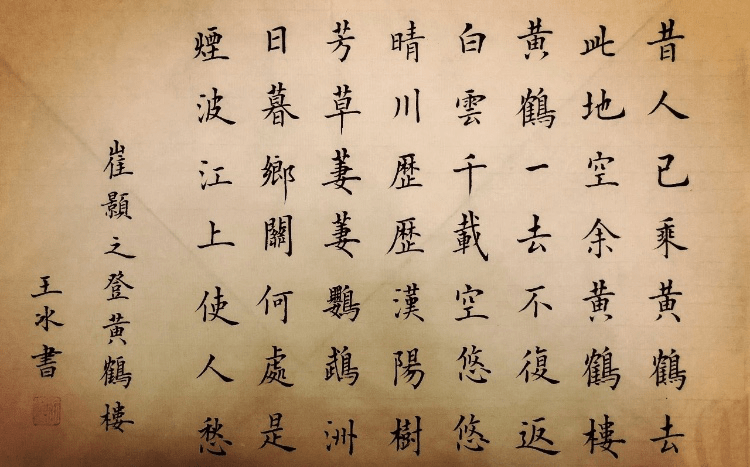 昔人已乘黄鶴去
此地空余黄鶴樓
黄鶴一去不復返
白雲千載空悠悠
晴川歷歷漢陽樹
芳草萋萋鸚鵡洲
日暮鄉關何處是
煙波江上使人愁
崔顥之登黄鶴樓
王冰書